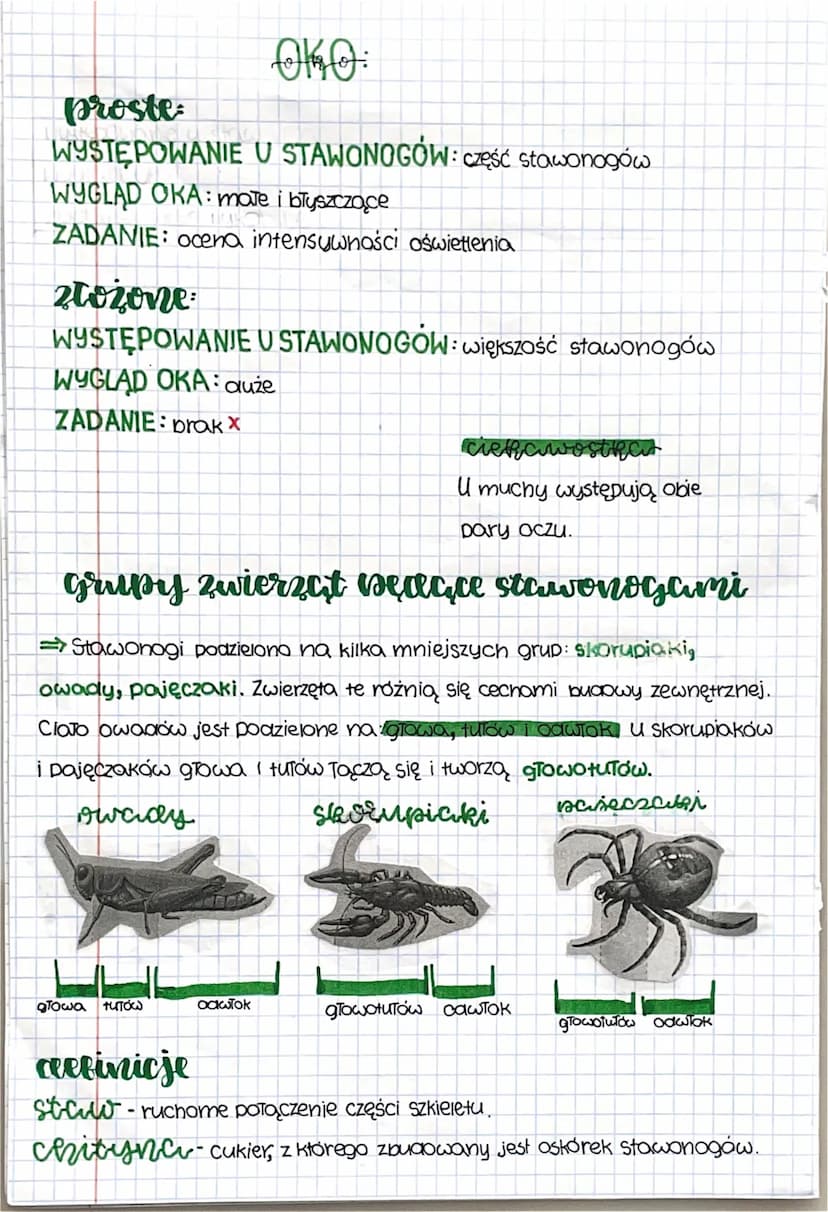 OKO:
proste:
WYSTĘPOWANIE U STAWONOGÓW: część stawonogów
WYGLĄD OKA: małe i błyszczące
ZADANIE: ocena intensywności oświetlenia
złożone:
WYSTĘPOWANIE U STAWONOGÓW: większość stawonogów
WYGLĄD OKA: duże
ZADANIE: brak x
ciekawostka
U muchy występują obie
pary oczu.
grupy zwierząt będące stawonogami
⇒ Stawonogi podzielono na kilka mniejszych grup: skorupiaki,
owady, pajęczaki. Zwierzęta te różnią się cechami budowy zewnętrznej.
Ciało owadów jest podzielone na: głowa, tułów i odwłok. U skorupiaków
i pajęczaków głowa i tułów łączą się i tworzą głowotułów.
owady skorupiaki pajęczaki
głowa tułów odwłok głowotułów odwłok głowotułów odwłok
definicje
staw - ruchome połączenie części szkieletu.
chityna - cukier, z którego zbudowany jest oskórek stawonogów.